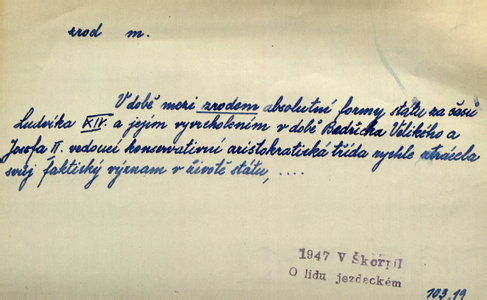 zrod m.
V době mezi zrodem absolutní formy státu za časů
Ludvíka XIV. a jejím vyvrcholením v době Bedřicha Velikého a
Josefa II. vedoucí konservativní aristokratická třída rychle ztrácela
svůj faktický význam v životě státu, ....
1947 V Škorpil
O lidu jezdeckém
103.19